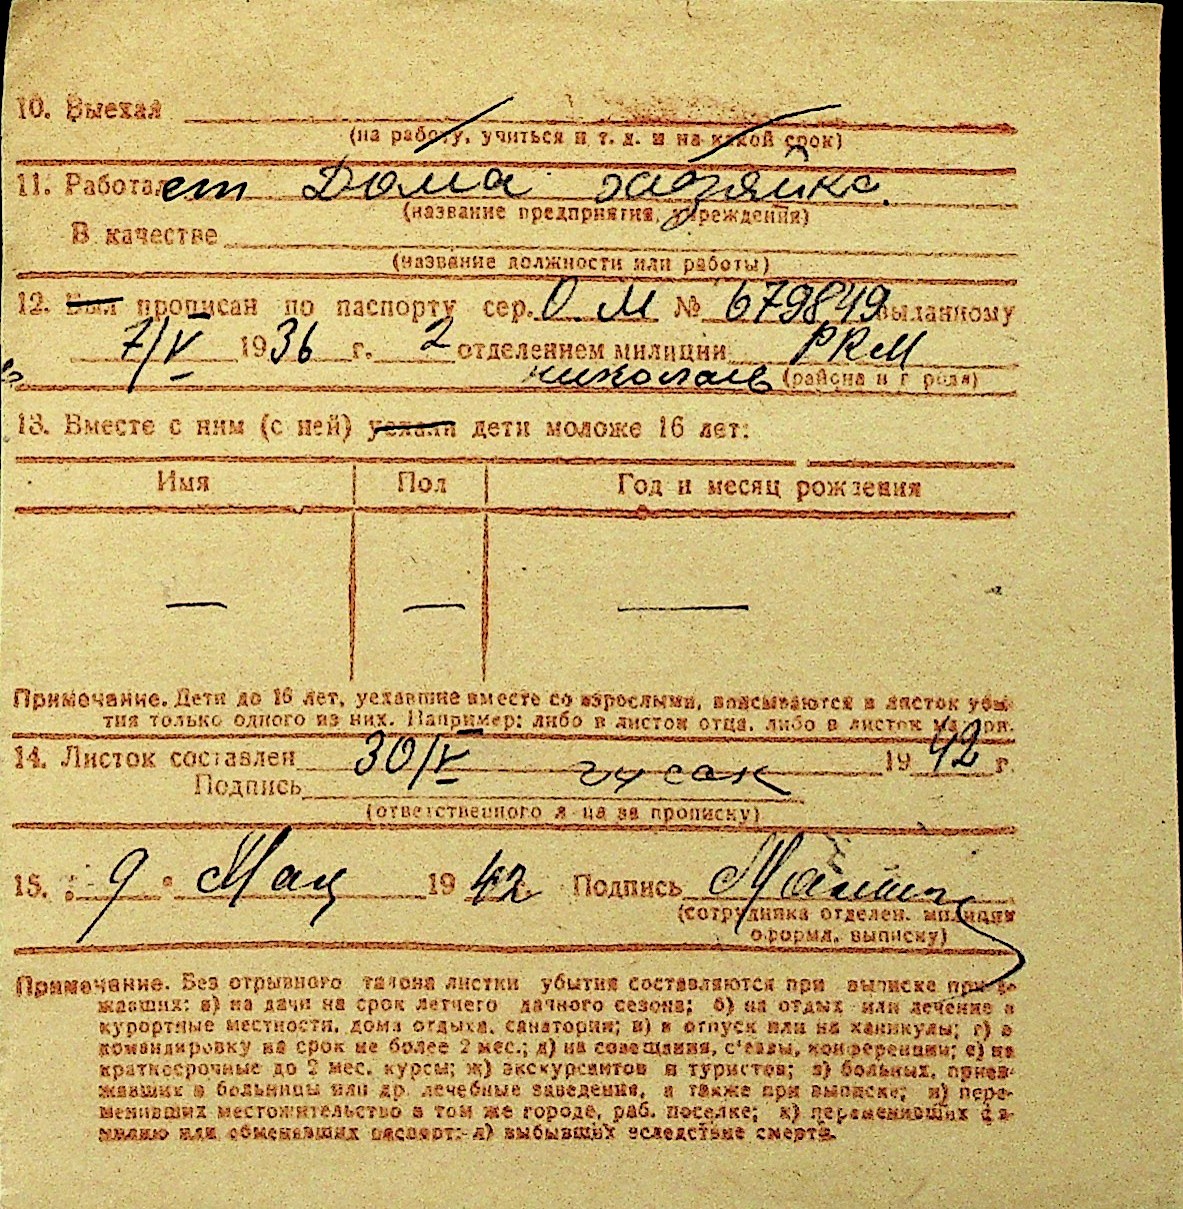 10. Выехал
(на работу, учиться и т. д. и на какой срок)
11. Работает Дома хазяйка.
(название предприятия, учреждения)
В качестве
(название должности или работы)
12. Был прописан по паспорту сер. О. М № 679849 выданному
7/V 1936 г. 2 отделением милиции РКМ
николаев (района и города)
13. Вместе с ним (с ней) уехали дети моложе 16 лет:
Имя Пол Год и месяц рождения
— — —
Примечание. Дети до 16 лет, уехавшие вместе со взрослыми, вписываются в листок убы-
тия только одного из них. Например: либо в листок отца, либо в листок матери.
14. Листок составлен 30/V 1942 г.
Подпись гусак
(ответственного л-ца за прописку)
15. 9 Мац 1942 Подпись
(сотрудника отделен. милиции
оформл. выписку)
Примечание. Без отрывного талона листки убытия составляются при выписке приез-
жавших: а) на дачи на срок летнего дачного сезона; б) на отдых или лечение в
курортные местности, дома отдыха, санатории; в) в отпуск или на каникулы; г) в
командировку на срок не более 2 мес.; д) на совещания, с'езды, конференции; е) на
краткосрочные до 2 мес. курсы; ж) экскурсантов и туристов; з) больных, приез-
жавших в больницы или др. лечебные заведения, а также при выписке; и) пере-
менивших местожительство в том же городе, раб. поселке; к) переменивших фа-
милию или обменявших паспорт; л) выбывших вследствие смерти.